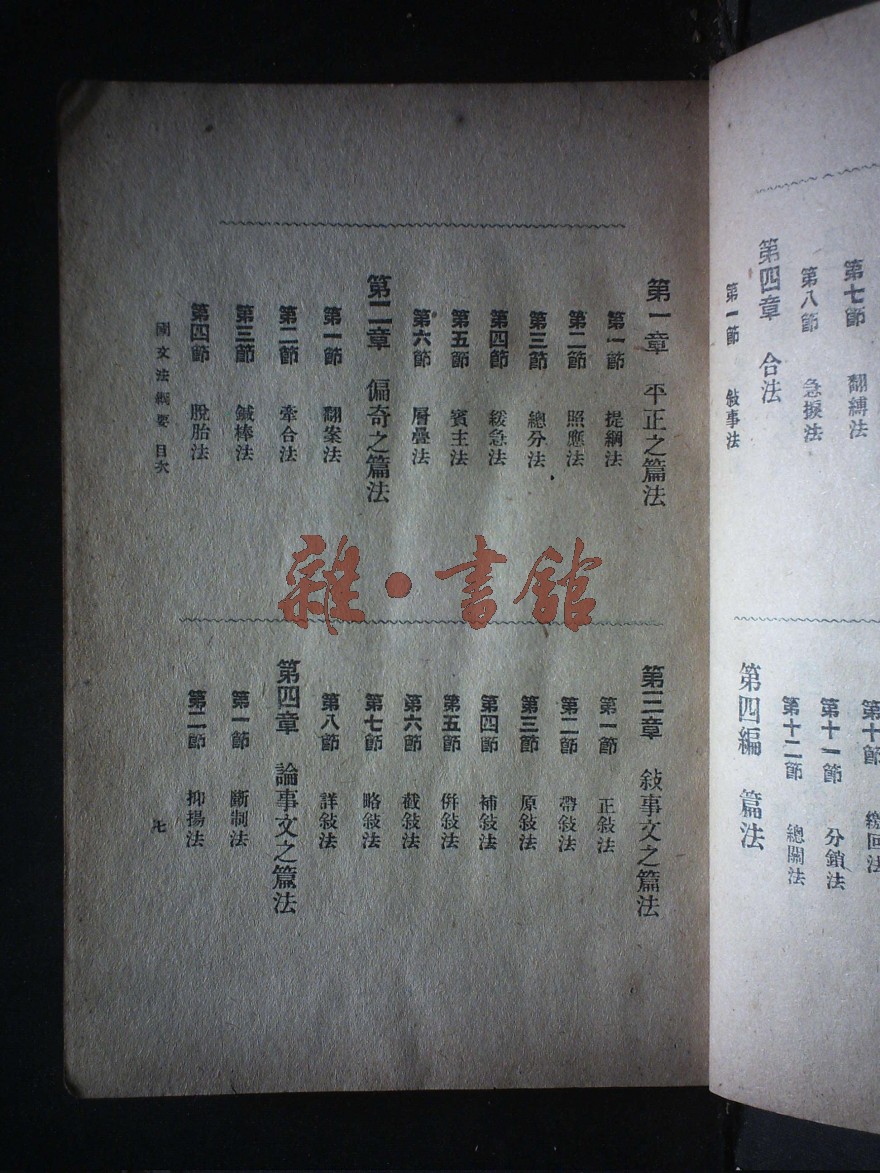 第七節 翻縛法
第八節 急捩法
第四章 合法
第一節 敍事法
第十節 繳回法
第十一節 分鎖法
第十二節 總關法
第四編 篇法
第一章 平正之篇法
第一節 提綱法
第二節 照應法
第三節 總分法
第四節 緩急法
第五節 賓主法
第六節 層疊法
第二章 偏奇之篇法
第一節 翻案法
第二節 牽合法
第三節 鍼棒法
第四節 脫胎法
第三章 敍事文之篇法
第一節 正敍法
第二節 帶敍法
第三節 原敍法
第四節 補敍法
第五節 倂敍法
第六節 截敍法
第七節 略敍法
第八節 詳敍法
第四章 論事文之篇法
第一節 斷制法
第二節 抑揚法
國文法綱要 目次
七
雜·書館